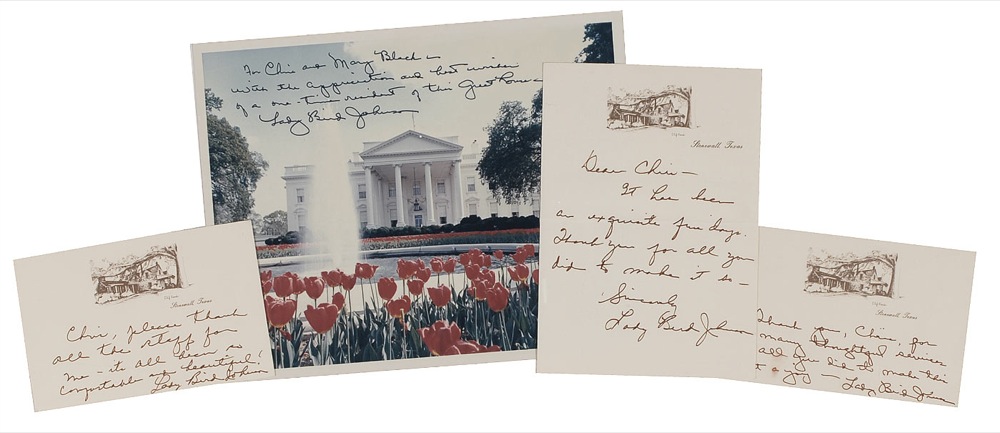 For Chris and Mary Black —
with the appreciation and best wishes
of a one-time resident of this Great House —
Lady Bird Johnson
Stonewall, Texas
Dear Chris —
It has been
an exquisite five days.
Thank you for all you
did to make it so —
Sincerely
Lady Bird Johnson
Stonewall, Texas
Chris, please thank
all the staff for
me – it's all been so
comfortable and beautiful!
Lady Bird Johnson
Stonewall, Texas
Thank you, Chris, for
many thoughtful services
all you did to make this
a joy — Lady Bird Johnson